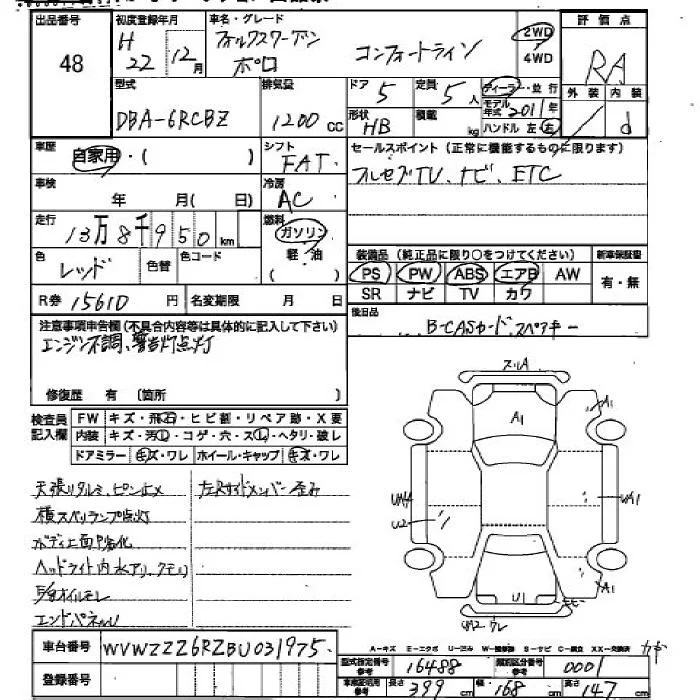 出品番号 初度登録年月 車名・グレード 評価点
48 H 22年 12月 フォルクスワーゲン ポロ コンフォートライン 2WD・4WD RA
型式 排気量 ドア 定員 ディーラー・並行 外装 内装
DBA-6RCBZ 1200cc 5 5人 モデル年式 2011年 d
形状 HB 積載 kg ハンドル 左・右
車歴 自家用・( ) シフト FAT セールスポイント(正常に機能するものに限ります)
車検 年 月( 日) 冷房 AC フルセグTV、ナビ、ETC
走行 13万8千950km 燃料 ガソリン 軽油 ( )
装備品(純正品に限り○をつけてください) 新車保証書
色 レッド 色替 色コード PS PW ABS エアB AW 有・無
R券 15610円 名変期限 月 日 SR ナビ TV カワ
注意事項申告欄(不具合内容等は具体的に記入して下さい) 後日品
エンジン不調、警告灯点灯 B-CASカード、スペアキー
修復歴 有 〔箇所 〕
検査員記入欄 FW キズ・飛石・ヒビ割・リペア跡・X要
内装 キズ・汚レ・コゲ・穴・スレ・ヘタリ・破レ
ドアミラー キズ・ワレ ホイール・キャップ キズ・ワレ
スリA
A1 A1
UA1 WA1
U2
A1
UI
WA2 ワレ
天張りタルミ、ピン止メ 左Rサイドメンバー歪み
横スベリランプ点灯
ボディ上面劣化
ヘッドライト内水アリ、クモリ
E/gオイルモレ
エンドパネルU
車台番号 WVWZZZ6RZBU031975
A-キズ E-エクボ U-凹ミ W-補修跡 S-サビ C-腐立 XX-交換済
登録番号 型式指定番号 参考 16488 類別区分番号 参考 0001
車庫証明用 参考 長さ 399cm 幅 168cm 高さ 147cm